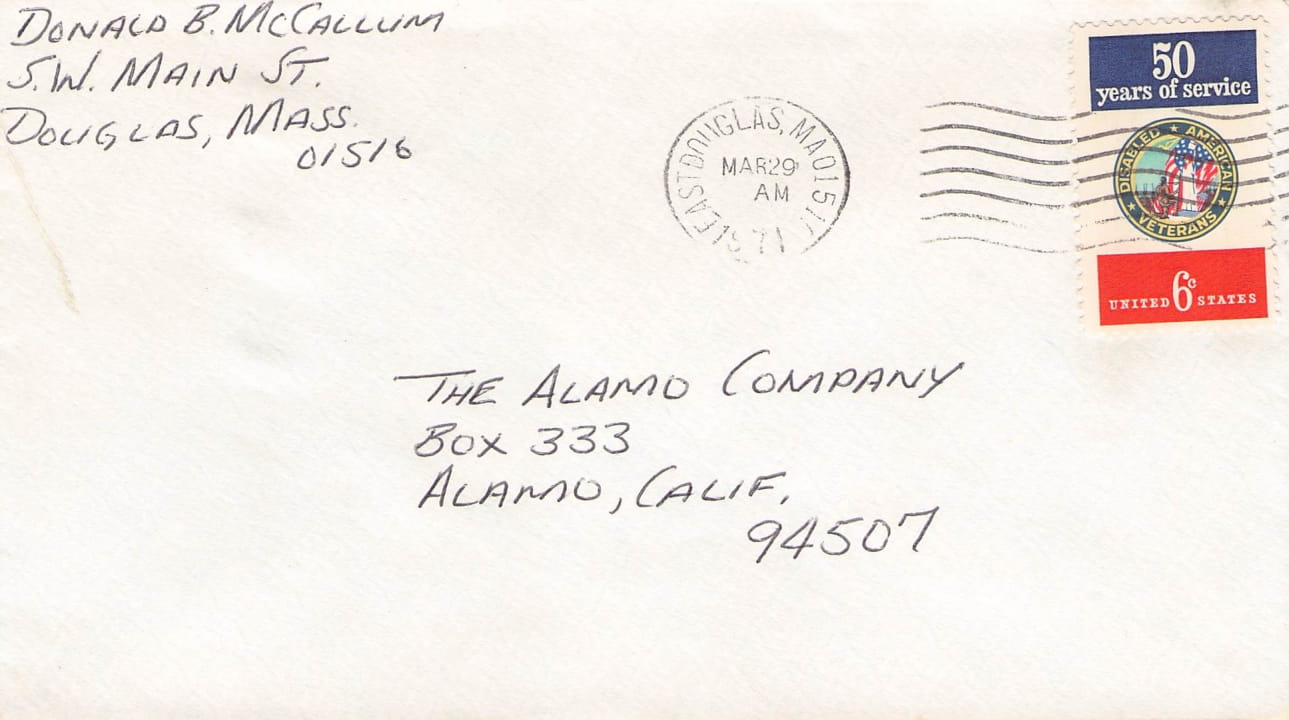 DONALD B. MCCALLUM
S.W. MAIN ST.
DOUGLAS, MASS.
01516
EAST DOUGLAS, MA 0151
MAR 29
AM
1971
50
years of service
DISABLED ★ AMERICAN ★ VETERANS ★
UNITED 6c STATES
THE ALAMO COMPANY
BOX 333
ALAMO, CALIF.
94507